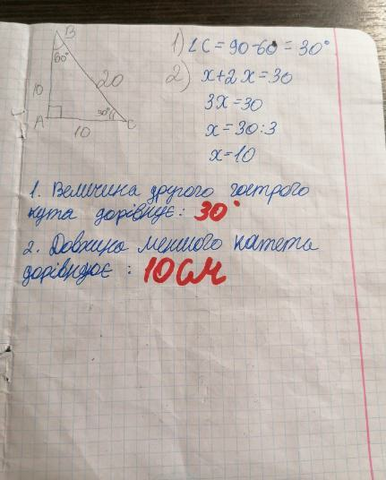 B
60°
10
20
A
30°
C
10
1) ∠C = 90-60° = 30°
2) x+2x=30
3x=30
x=30:3
x=10
1. Величина другого гострого
кута дорівнює: 30°
2. Довжина меншого катета
дорівнює: 10см